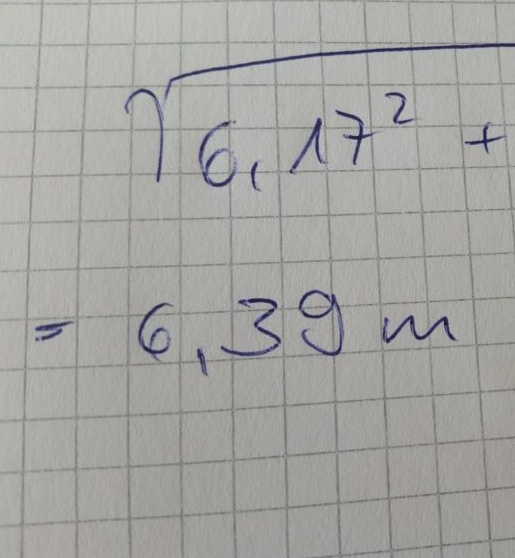 √6,17² +
= 6,39 m